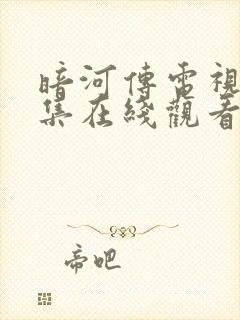 暗河傳電視
集在綫觀看
帝吧